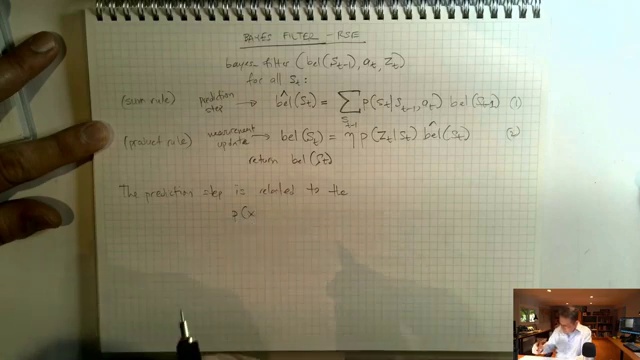 BAYES FILTER - RSE
bayes filter (bel(S_{t-1}), a_t, Z_t)
for all S_t:
(sum rule) prediction step → b̂el(S_t) = ∑_{S_{t-1}} p(S_t | S_{t-1}, a_t) bel(S_{t-1}) (1)
(product rule) measurement update → bel(S_t) = η p(Z_t | S_t) b̂el(S_t) (2)
return bel(S_t)
The prediction step is related to the
p(x